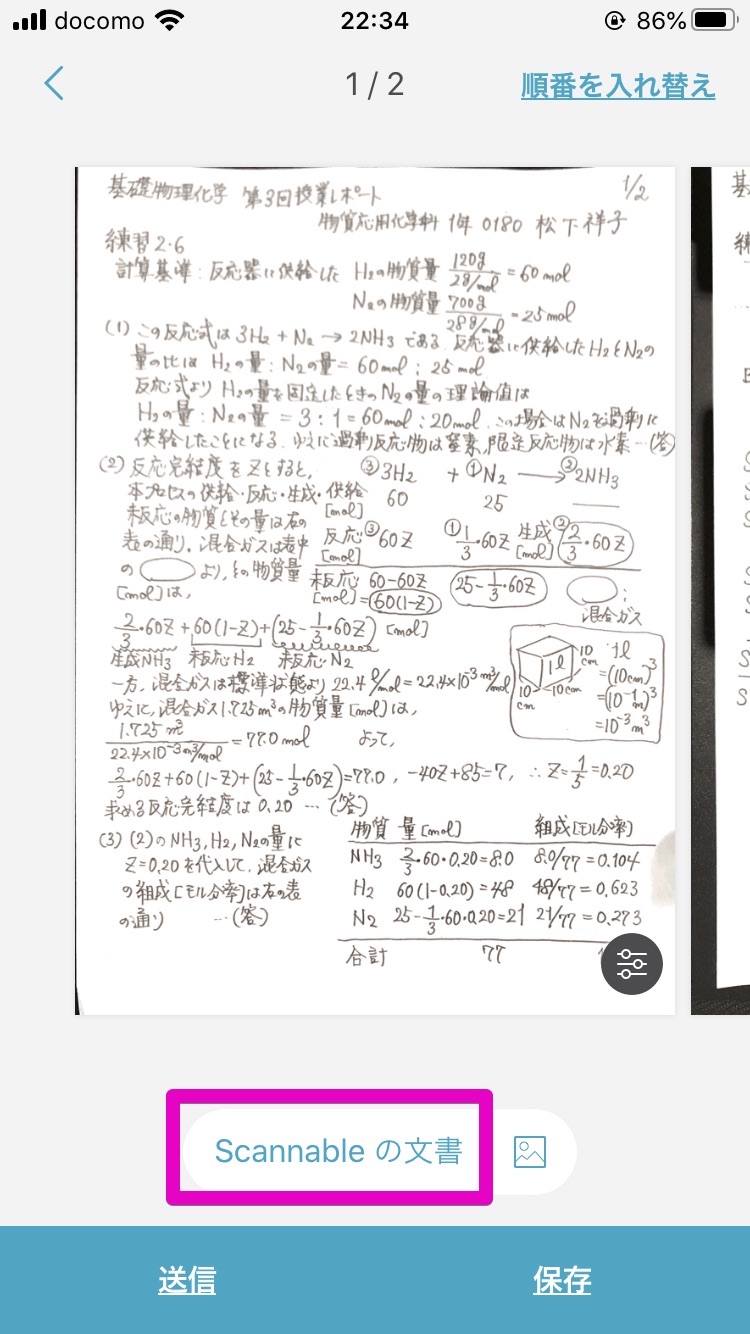 docomo 22:34 86%
1 / 2 順番を入れ替え
基礎物理化学 第3回授業レポート 1/2
物質応用化学科 1年 0180 松下祥子
練習2.6
計算基準:反応器に供給した H₂の物質量 120g/2g/mol = 60 mol
N₂の物質量 700g/28g/mol = 25mol
(1) この反応式は 3H₂ + N₂ → 2NH₃ である。反応器に供給したH₂とN₂の
量の比は H₂の量:N₂の量 = 60mol : 25 mol
反応式より H₂の量を固定したときのN₂の量の理論値は
H₂の量:N₂の量 = 3:1 = 60mol : 20mol. この場合はN₂を過剰に
供給したことになる。ゆえに過剰反応物は窒素、限定反応物は水素…(答)
(2) 反応完結度をZとすると、 ③3H₂ + ①N₂ → ②2NH₃
本プロセスの供給・反応・生成・ 供給[mol] 60 25 —
未反応の物質とその量は右の
表の通り。混合ガスは表中 反応[mol] ③60Z ①1/3・60Z 生成[mol] ②2/3・60Z
の より、その物質量 未反応[mol] 60-60Z =60(1-Z) 25-1/3・60Z ;混合ガス
[mol]は、
2/3・60Z + 60(1-Z) + (25-1/3・60Z) [mol]
生成NH₃ 未反応H₂ 未反応N₂
1l 10cm 10cm 10cm 1l =(10cm)³ =(10⁻¹m)³ =10⁻³m³
一方、混合ガスは標準状態より 22.4 l/mol = 22.4×10⁻³ m³/mol
ゆえに、混合ガス1.725m³の物質量[mol]は、
1.725 m³/22.4×10⁻³m³/mol = 77.0 mol よって、
2/3・60Z+60(1-Z)+(25-1/3・60Z)=77.0, -40Z+85=7, ∴ Z=1/5=0.20
求める反応完結度は 0.20 … (答)
(3) (2)のNH₃,H₂,N₂の量に 物質 量[mol] 組成[モル分率]
Z=0.20を代入して、混合ガス NH₃ 2/3・60・0.20=8.0 8.0/77=0.104
の組成[モル分率]は右の表 H₂ 60(1-0.20)=48 48/77=0.623
の通り …(答) N₂ 25-1/3・60・0.20=21 21/77=0.273
合計 77
Scannable の文書
送信 保存